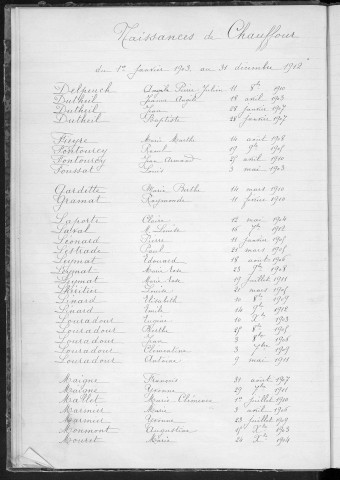 Naissances de Chauffour
du 1er Janvier 1903 au 31 décembre 1912
Delpeuch Pierre Julien 11 8bre 1910
Dutheil Jeanne 18 avril 1903
Dutheil Jean 28 janvier 1907
Dutheil Baptiste 28 janvier 1907
Fieyre Marie Marthe 14 avril 1908
Fontourcy 19 1905
Fontourcy Armand 25 avril 1910
Foussat Louis 3 mai 1903
Gardette Marie Berthe 14 mars 1910
Gramat Raymonde 11 février 1910
Laporte Claire 12 mai 1904
Laval M. Louise 16 1912
Léonard Pierre 11 janvier 1905
Lestrade Paul 21 mars 1905
Leymat Edouard 18 août 1906
Leymat Marie 23 1908
Leymat Marie 19 juillet 1911
Lheritier Louise 21 mars 1905
Linard Elisabeth 10 1909
Linard Emile 14 1912
Louradour Eugène 10 1903
Louradour Berthe 25 1905
Louradour Jean 3 1906
Louradour Clémentine 3 1909
Louradour Antoine 9 mai 1911
Maigne François 31 août 1907
Maigne Yvonne 29 1911
Mallet Marie Clémence 1er juillet 1910
Marmier Marie 3 avril 1906
Marmier Yvonne 23 juillet 1909
Monmont Augustine 1903
Mouret Marie 24 Xbre 1904